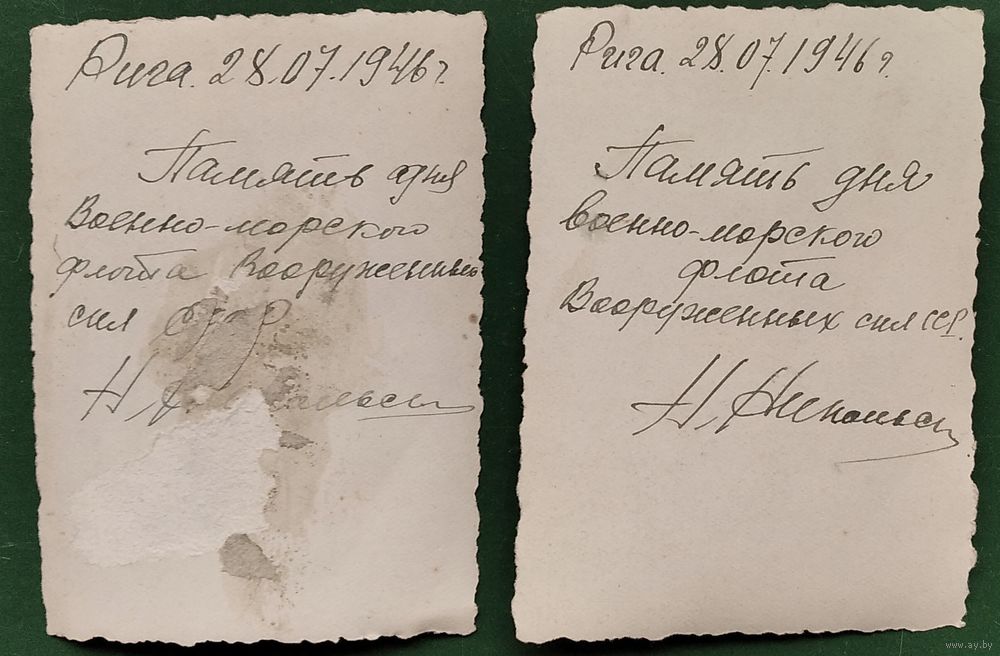 Рига. 28.07.1946 г.
Память дня
Военно-морского
флота Вооруженных
сил СССР
Н.
Рига. 28.07.1946 г.
Память дня
военно-морского
флота
Вооруженных сил СССР.
Н.
www.ay.by